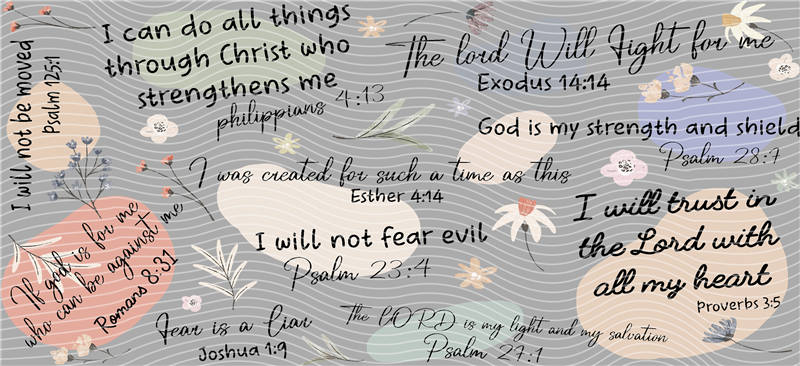 I will not be moved
Psalm 125:1
I can do all things
through Christ who
strengthens me
philippians 4:13
The lord Will Fight for me
Exodus 14:14
God is my strength and shield
Psalm 28:7
I was created for such a time as this
Esther 4:14
I will trust in
the Lord with
all my heart
Proverbs 3:5
I will not fear evil
Psalm 23:4
If god is for me
who can be against me
Romans 8:31
Fear is a liar
Joshua 1:9
The LORD is my light and my salvation
Psalm 27:1